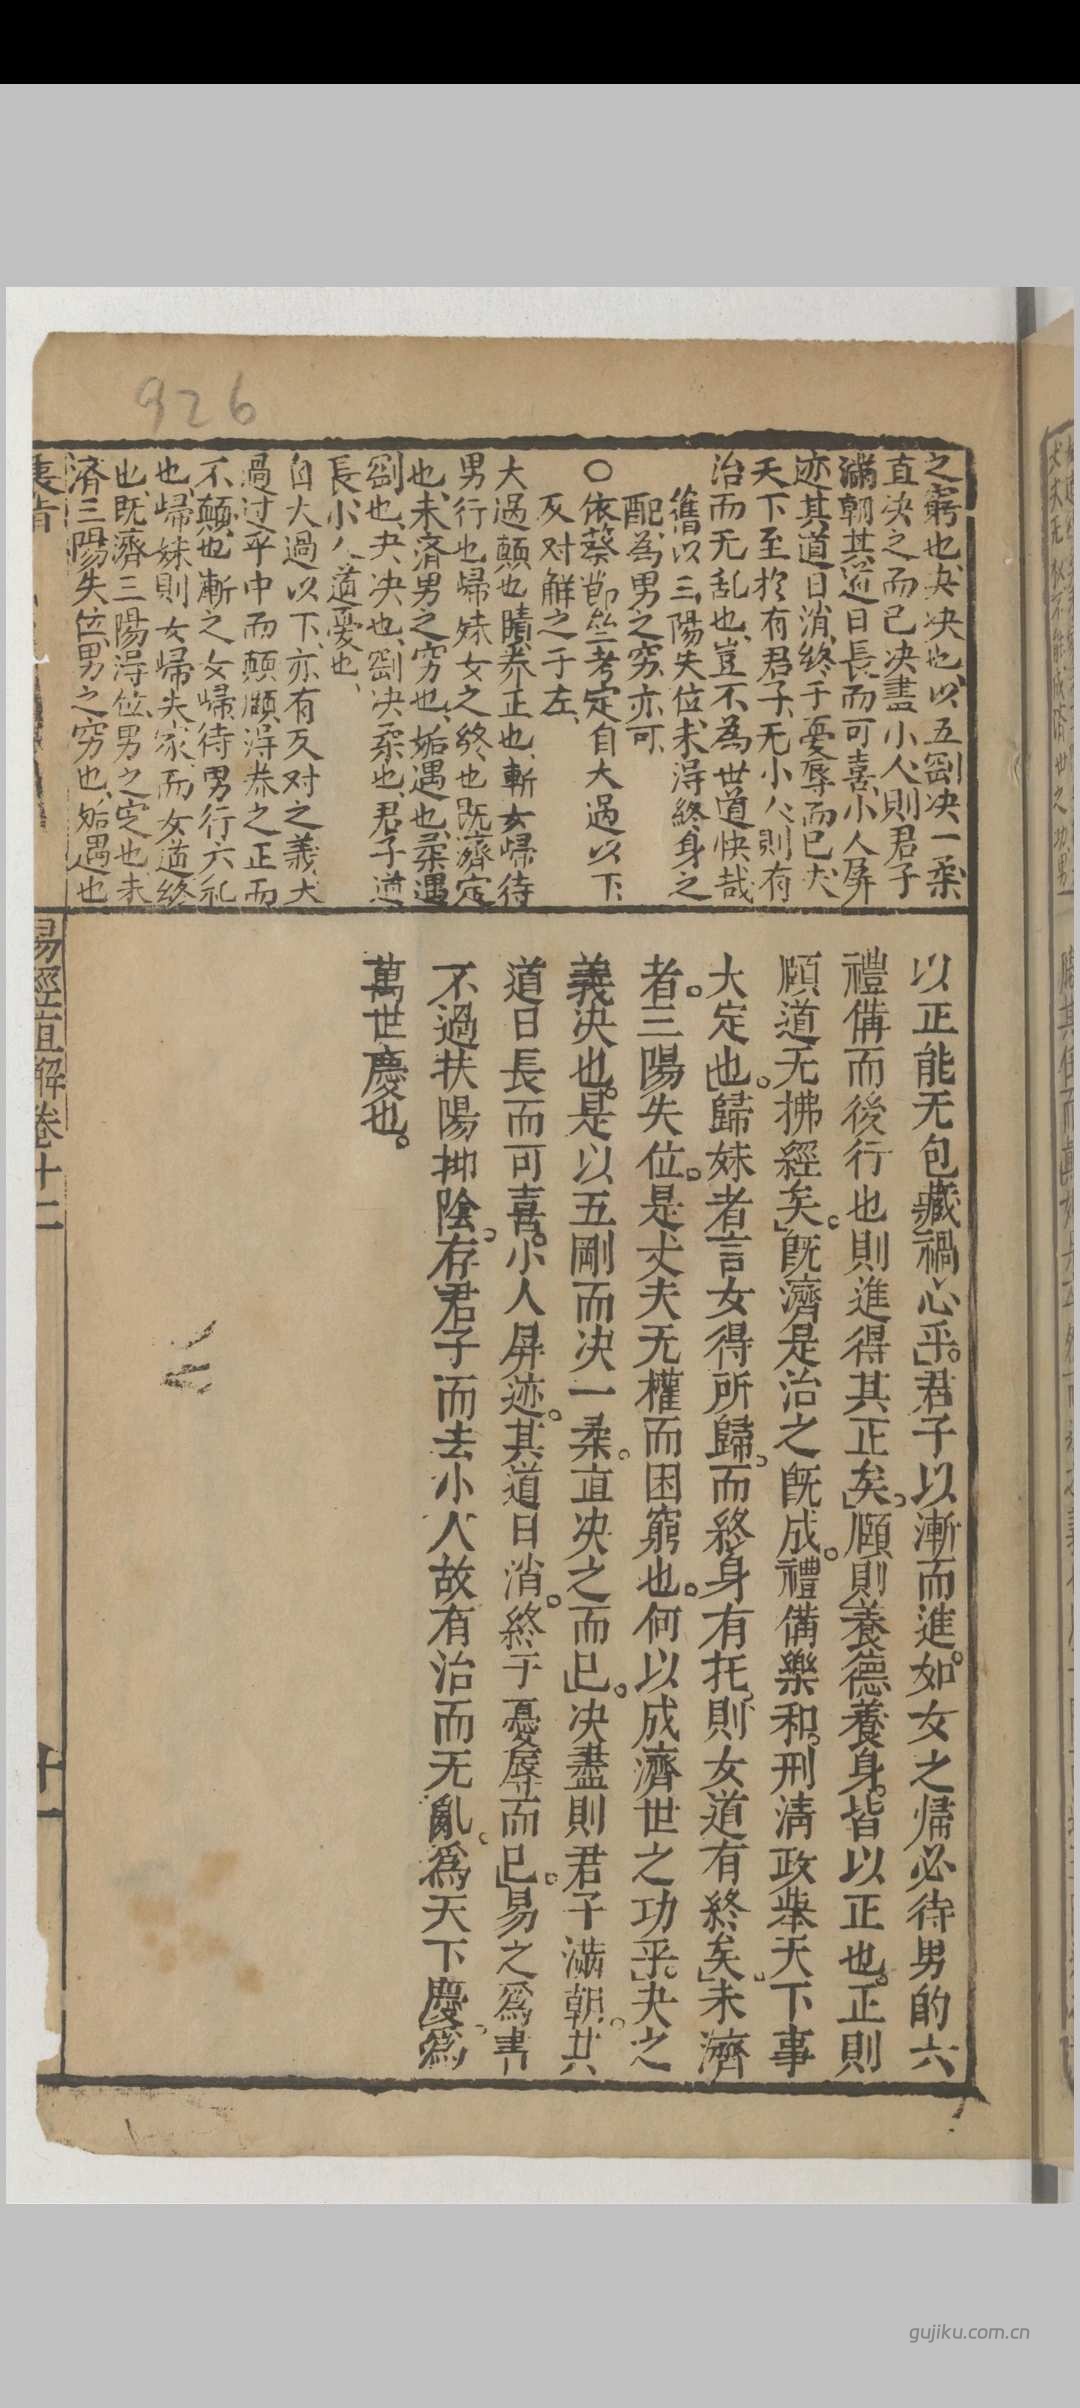 926
之窮也夬決也以五剛決一柔
直决之而已决盡小人則君子
滿朝其道日長而可喜小人屏
迹其道日消終于憂辱而已夫
天下至於有君子无小人則有
治而无乱也豈不為世道快哉
舊以三陽失位未淂終身之
配為男之窮亦可
○依蔡節竺考定自大過以下
反对解之于左
大過顛也頤养正也漸女歸待
男行也歸妹女之終也既濟定
也未済男之穷也姤遇也柔遇
剛也夬决也剛决柔也君子道
長小人道憂也
自大過以下亦有反对之義大
過过乎中而顛頤淂养之正而
不顛也漸之女歸待男行六礼
也歸妹則女歸失家而女道終
也既濟三陽淂位男之定也未
済三陽失位男之穷也姤遇也
以正能无包藏禍心乎君子以漸而進如女之歸必待男的六
禮備而後行也則進得其正矣頤則養德養身皆以正也正則
頤道无拂經矣既濟是治之既成禮備樂和刑淸政舉天下事
大定也歸妹者言女得所歸而終身有托則女道有終矣未濟
者三陽失位是丈夫无權而困窮也何以成濟世之功乎夬之
義決也是以五剛而决一柔直决之而已决盡則君子滿朝其
道日長而可喜小人屏迹其道日消終于憂辱而已易之爲書
不過扶陽抑陰存君子而去小人故有治而无亂爲天下慶爲
萬世慶也
易經直解卷十二
十一
gujiku.com.cn